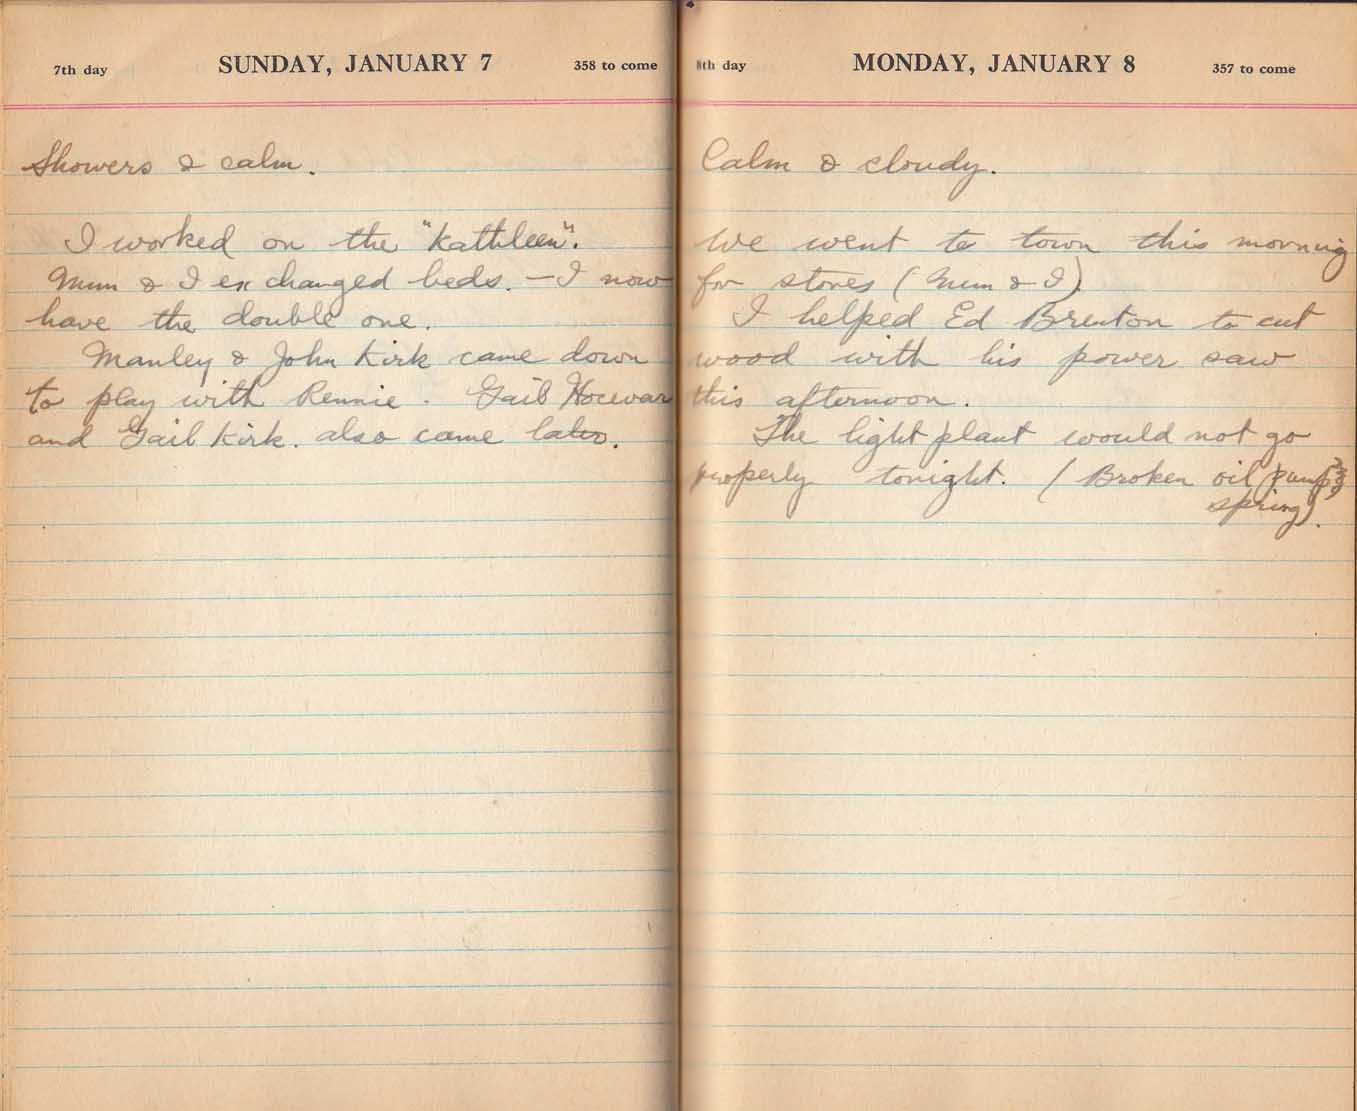 7th day SUNDAY, JANUARY 7 358 to come
Showers & calm.
I worked on the "Kathleen".
Mum & I exchanged beds. - I now
have the double one.
Manley & John Kirk came down
to play with Rennie. Gail Hocevar
and Gail Kirk. also came later.
8th day MONDAY, JANUARY 8 357 to come
Calm & cloudy.
We went to town this morning
for stores (Mum & I)
I helped Ed Brenton to cut
wood with his power saw
this afternoon.
The light plant would not go
properly tonight. (Broken oil pump
spring).